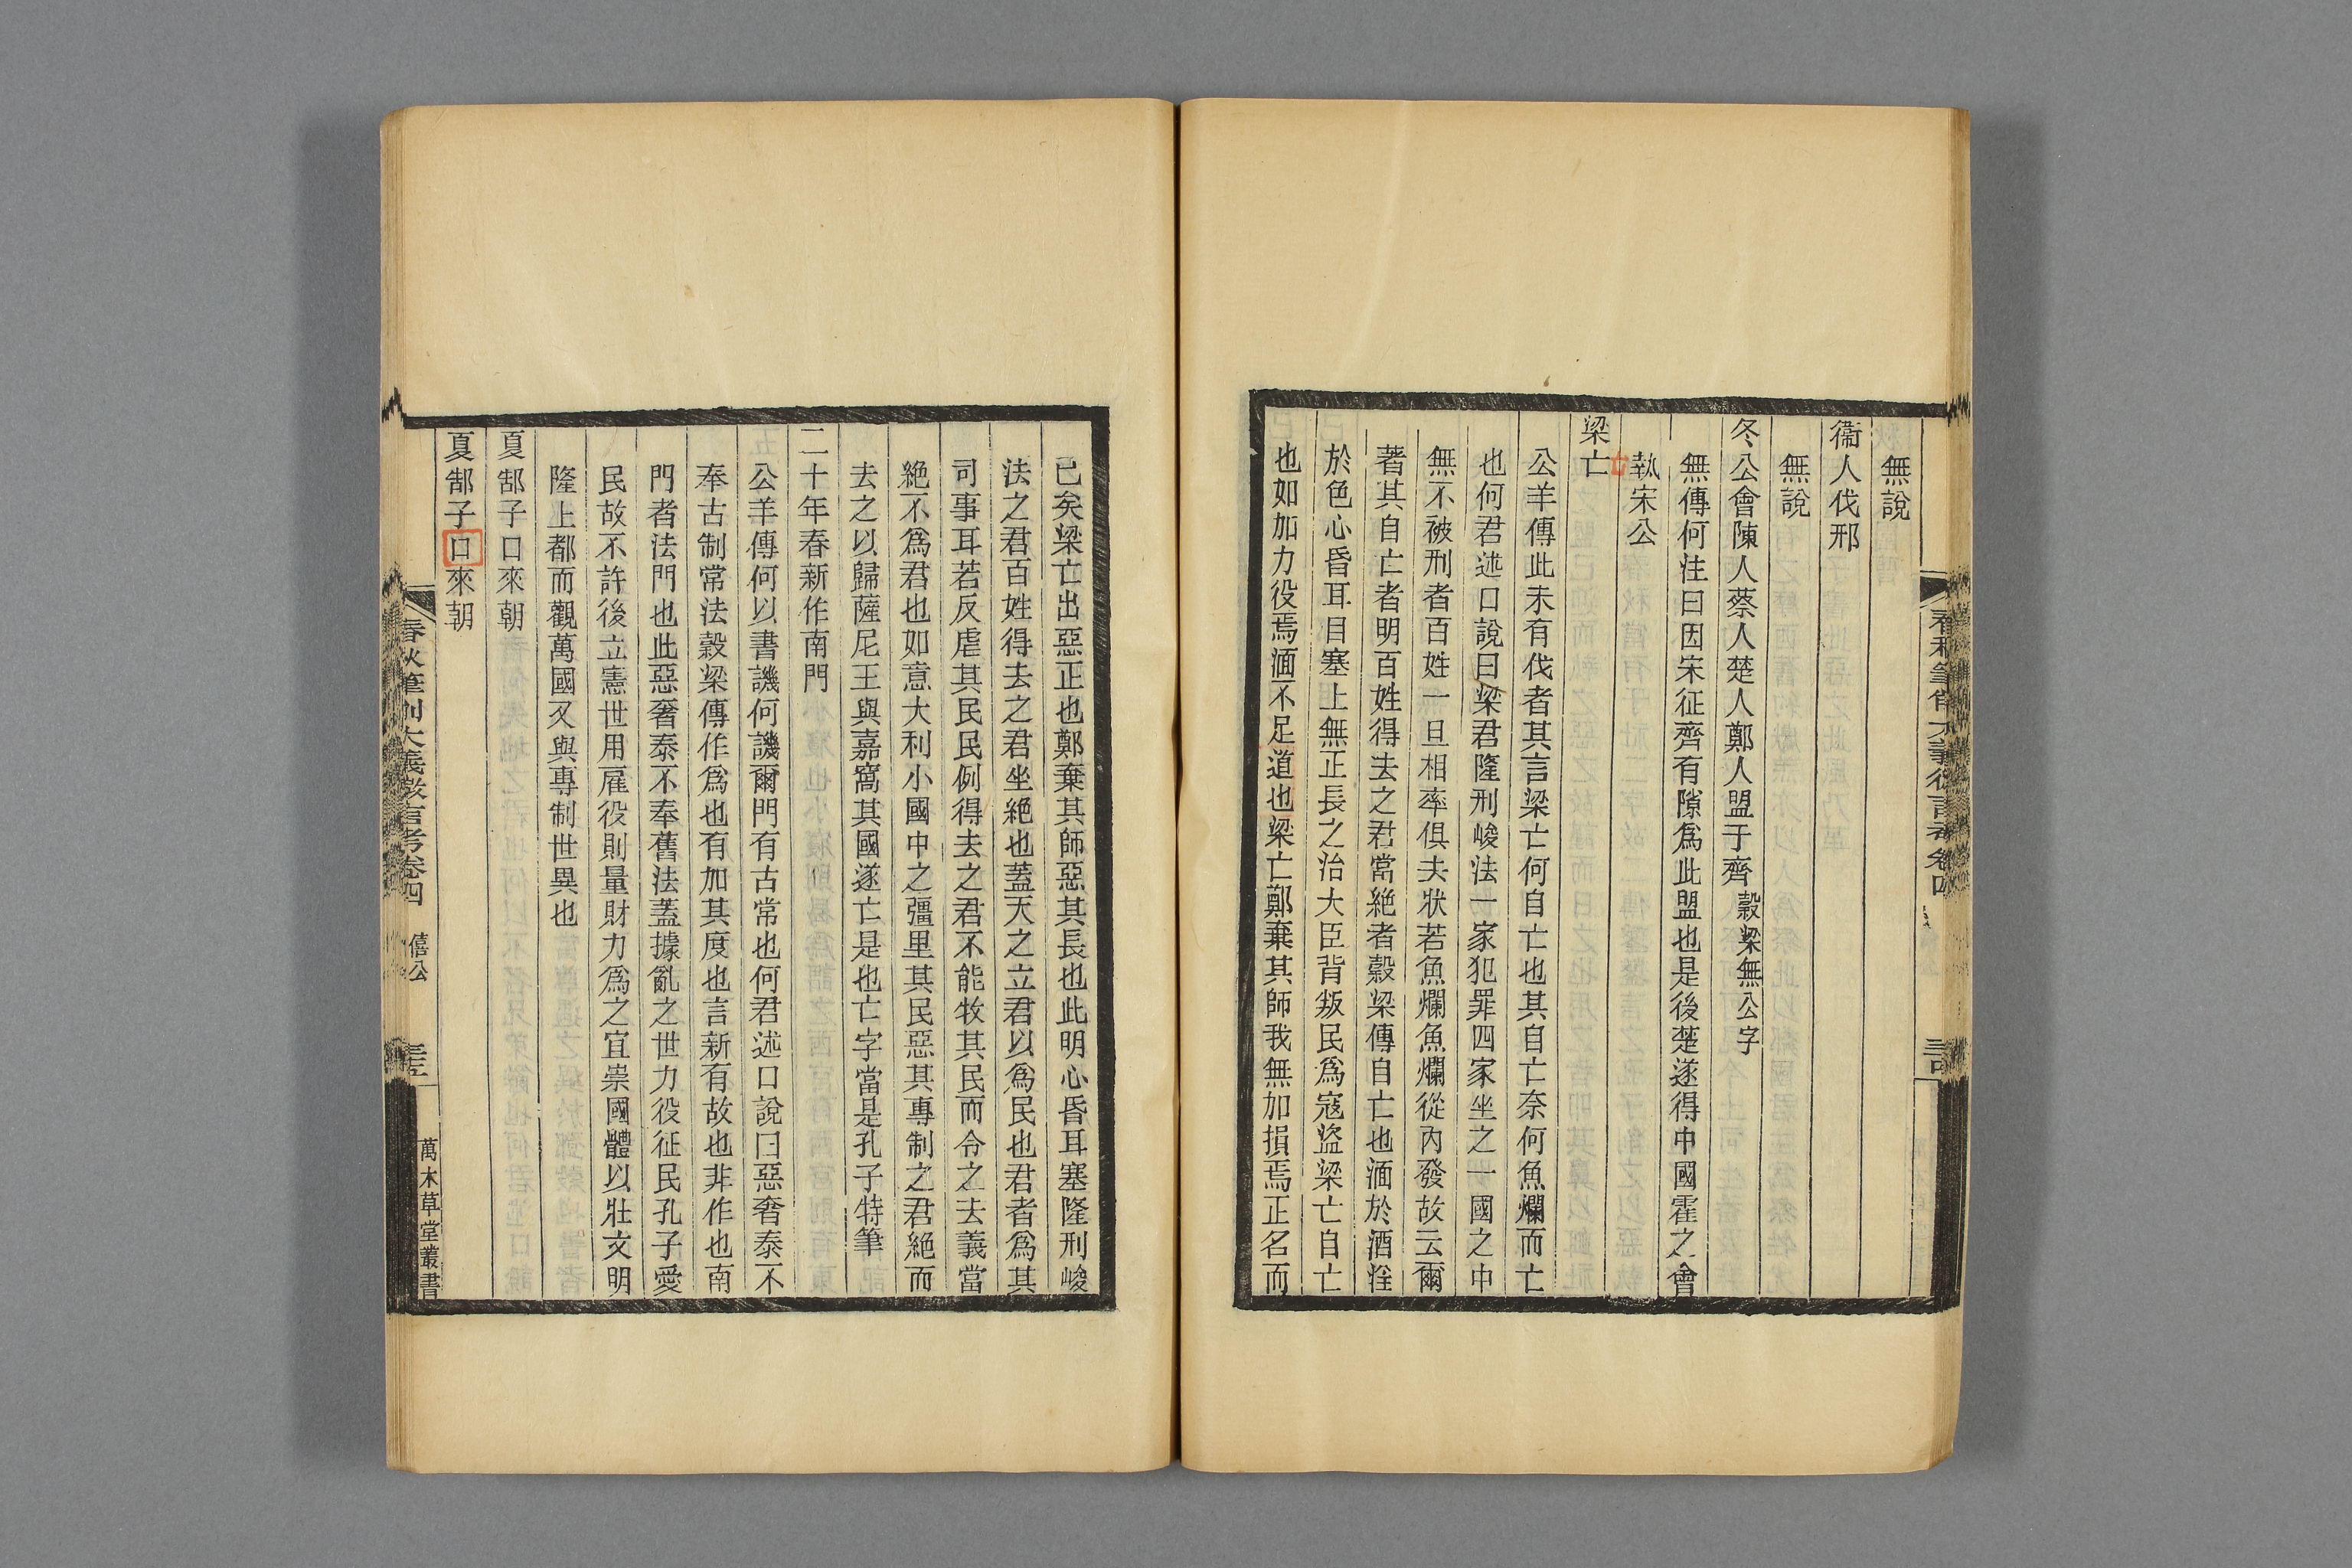 無說
衞人伐邢
無說
冬公會陳人蔡人楚人鄭人盟于齊穀梁無公字
無傳何注曰因宋征齊有隙爲此盟也是後楚遂得中國霍之會
執宋公
梁亡
公羊傳此未有伐者其言梁亡何自亡也其自亡奈何魚爛而亡
也何君述口說曰梁君隆刑峻法一家犯罪四家坐之一國之中
無不被刑者百姓一旦相率俱去狀若魚爛魚爛從內發故云爾
著其自亡者明百姓得去之君當絶者穀梁傳自亡也湎於酒淫
於色心昏耳目塞上無正長之治大臣背叛民爲寇盜梁亡自亡
也如加力役焉湎不足道也梁亡鄭棄其師我無加損焉正名而
已矣梁亡出惡正也鄭棄其師惡其長也此明心昏耳塞隆刑峻
法之君百姓得去之君坐絶也蓋天之立君以爲民也君者爲其
司事耳若反虐其民民例得去之君不能牧其民而令之去義當
絶不爲君也如意大利小國中之彊里其民惡其專制之君絶而
去之以歸薩尼王與嘉窩其國遂亡是也亡字當是孔子特筆
二十年春新作南門
公羊傳何以書譏何譏爾門有古常也何君述口說曰惡奢泰不
奉古制常法穀梁傳作爲也有加其度也言新有故也非作也南
門者法門也此惡奢泰不奉舊法蓋據亂之世力役征民孔子愛
民故不許後立憲世用雇役則量財力爲之宜崇國體以壯文明
隆上都而觀萬國又與專制世異也
夏郜子口來朝
夏郜子口來朝
春秋筆削大義微言考卷四 僖公 三五 萬木草堂叢書